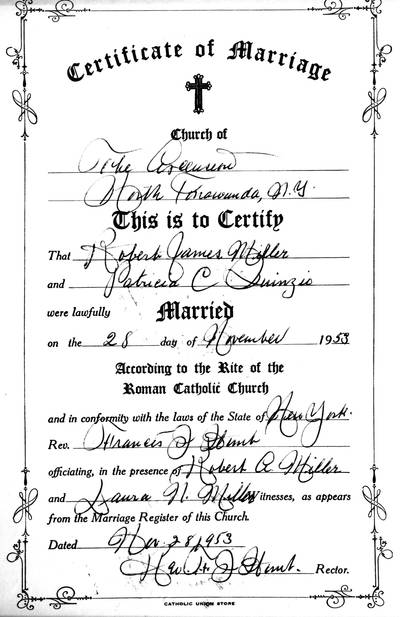 Certificate of Marriage
Church of
The Ascension
North Tonawanda, N.Y.
This is to Certify
That Robert James Miller
and Patricia C
were lawfully Married
on the 28 day of November 1953
According to the Rite of the
Roman Catholic Church
and in conformity with the laws of the State of New York.
Rev. Francis J
officiating, in the presence of Robert A. Miller
and Laura N. Miller Witnesses, as appears
from the Marriage Register of this Church.
Dated Nov. 28, 1953
Rev. F. J. Rector.
CATHOLIC UNION STORE